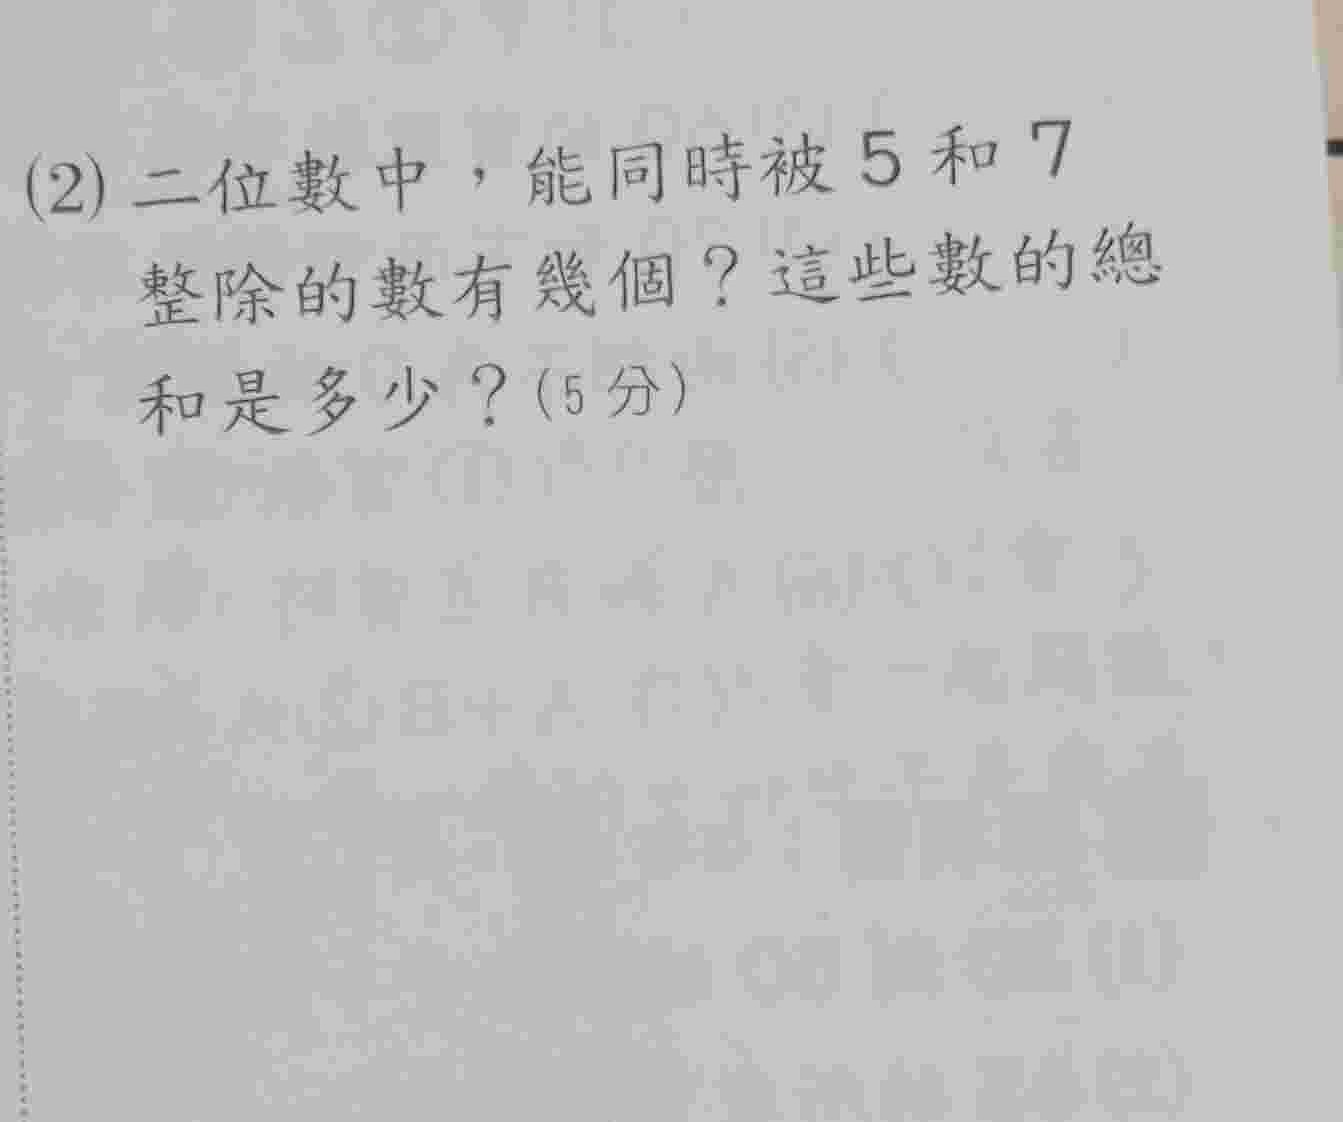 (2) 二位數中，能同時被 5 和 7
整除的數有幾個？這些數的總
和是多少？(5 分)